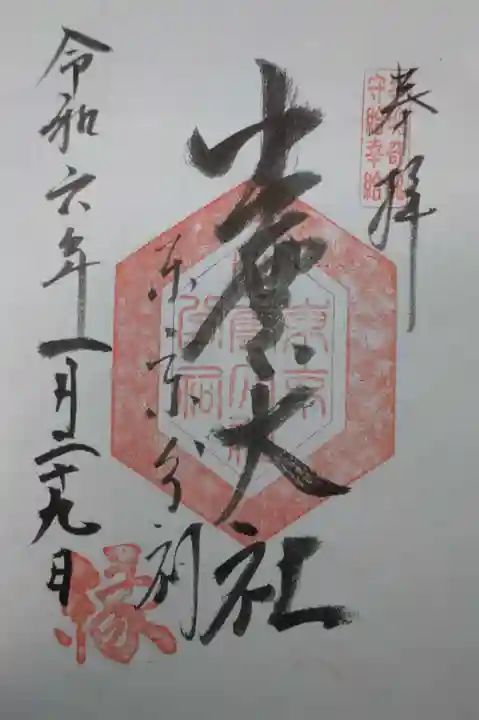 奉拝
幸魂奇魂
守給幸給
出雲大社
東京
出雲大社
分祠
東京分祠
令和六年一月二十九日
縁